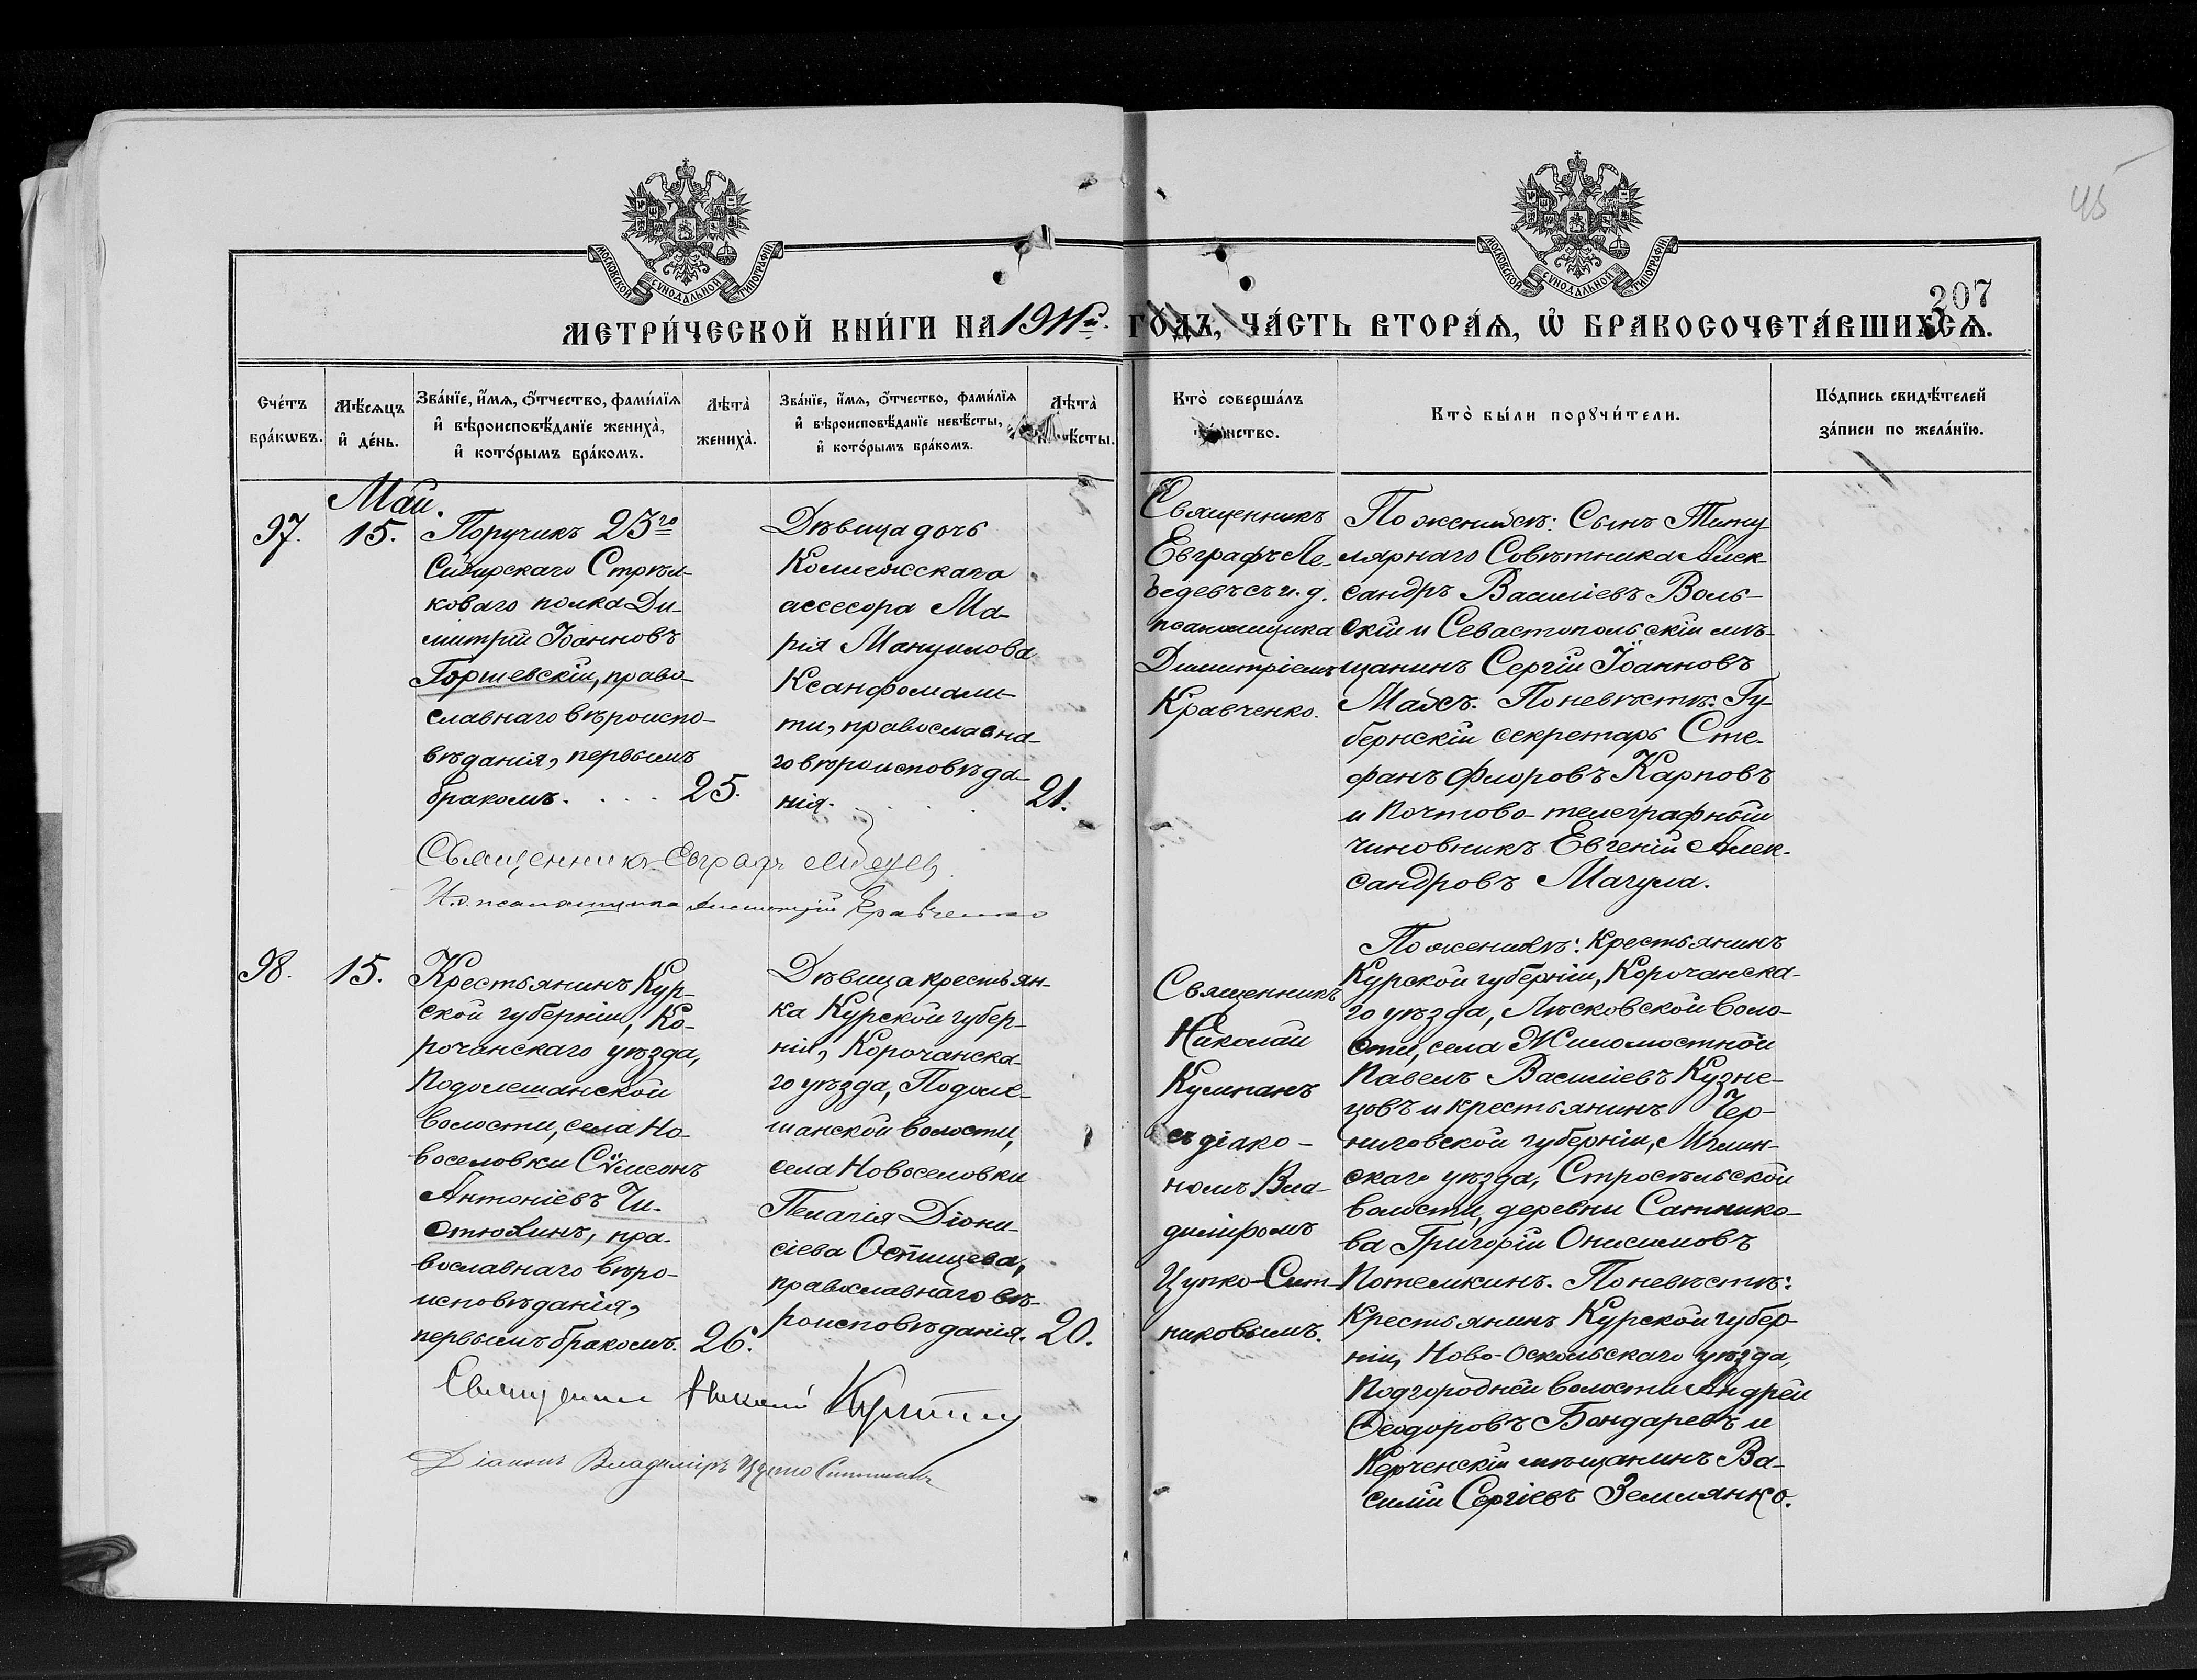 45
МОСКОВСКОЙ СѴНОДАЛЬНОЙ ТИПОГРАФІИ
МОСКОВСКОЙ СѴНОДАЛЬНОЙ ТИПОГРАФІИ
207
МЕТРИ́ЧЕСКОЙ КНИ́ГИ НА 1911й. ГОДЪ, ЧА́СТЬ ВТОРА́Я, Ѡ҆ БРАКОСОЧЕТА́ВШИХСЯ.
Сче́тъ
бра́кѡвъ.
Мѣ́сяцъ
и҆ де́нь.
Зва́нїе, и҆́мя, ѻ҆́тчество, фами́лїя
и҆ вѣроисповѣ́данїе жениха̀,
и҆ кото́рымъ бра́комъ.
Лѣта̀
жениха̀.
Зва́нїе, и҆́мя, ѻ҆́тчество, фами́лїя
и҆ вѣроисповѣ́данїе невѣ́сты,
и҆ кото́рымъ бра́комъ.
Лѣта̀
невѣ́сты.
Кто̀ соверша́лъ
та́инство.
Кто̀ бы́ли порꙋчи́тели.
По́дпись свидѣ́телей
за́писи по жела́нїю.
Май.
97.
15.
Поручикъ 23го
Сибирскаго Стрѣл-
коваго полка Ди-
митрій Іоанновъ
Горшевскій, право-
славнаго вѣроиспо-
вѣданія, первымъ
бракомъ. . . . 25.
Дѣвица дочь
Коллежскаго
ассесора Ма-
рія Мануилова
Ксанфомали-
ти, православна-
го вѣроисповѣда-
нія. . . . . 21.
Священникъ
Евграфъ Ле-
бедевъ съ и. д.
псаломщика
Димитріемъ
Кравченко.
По женихѣ: Сынъ Титу
лярнаго Совѣтника Алек-
сандръ Василіевъ Воль-
скій и Севастопольскій мѣ-
щанинъ Сергій Іоанновъ
Майсъ. По невѣстѣ: Гу-
бернскій секретарь Сте-
фанъ Флоровъ Карповъ
и Почтово-телеграфный
чиновникъ Евгеній Алек-
сандровъ Магула.
Священникъ Евграфъ Лебедев
И.д. псаломщика Димитрій Кравченко
98.
15.
Крестьянинъ Кур-
ской губерніи, Ко-
рочанскаго уѣзда,
Подолешанской
волости, села Но-
воселовки Сѵмеонъ
Антоніевъ Чи-
стюхинъ, пра-
вославнаго вѣро-
исповѣданія,
первымъ бракомъ. 26.
Дѣвица крестьян-
ка Курской губер-
ніи, Корочанска-
го уѣзда, Подоле-
шанской волости,
села Новоселовки
Пелагія Діони-
сіева Остищева,
православнаго вѣ-
роисповѣданія. 20.
Священникъ
Николай
Кумпанъ
съ діако-
номъ Вла-
диміромъ
Цупко-Сит-
никовымъ.
По женихѣ: Крестьянинъ
Курской губерніи, Корочанска-
го уѣзда, Лѣсковской воло-
сти, села Жиломостной
Павелъ Василіевъ Кузне-
цовъ и крестьянинъ Чер-
ниговской губерніи, Мглин-
скаго уѣзда, Стросѣльской
волости, деревни Сатнико-
ва Григорій Онисимовъ
Потемкинъ. По невѣстѣ:
Крестьянинъ Курской губер-
ніи, Ново-Оскольскаго уѣзда,
Подгородней волости Андрей
Ѳеодоровъ Бондаревъ и
Керченскій мѣщанинъ Ва-
силій Сергіевъ Землянко.
Священник Николай Кумпан
Діаконъ Владиміръ Цупко Ситников